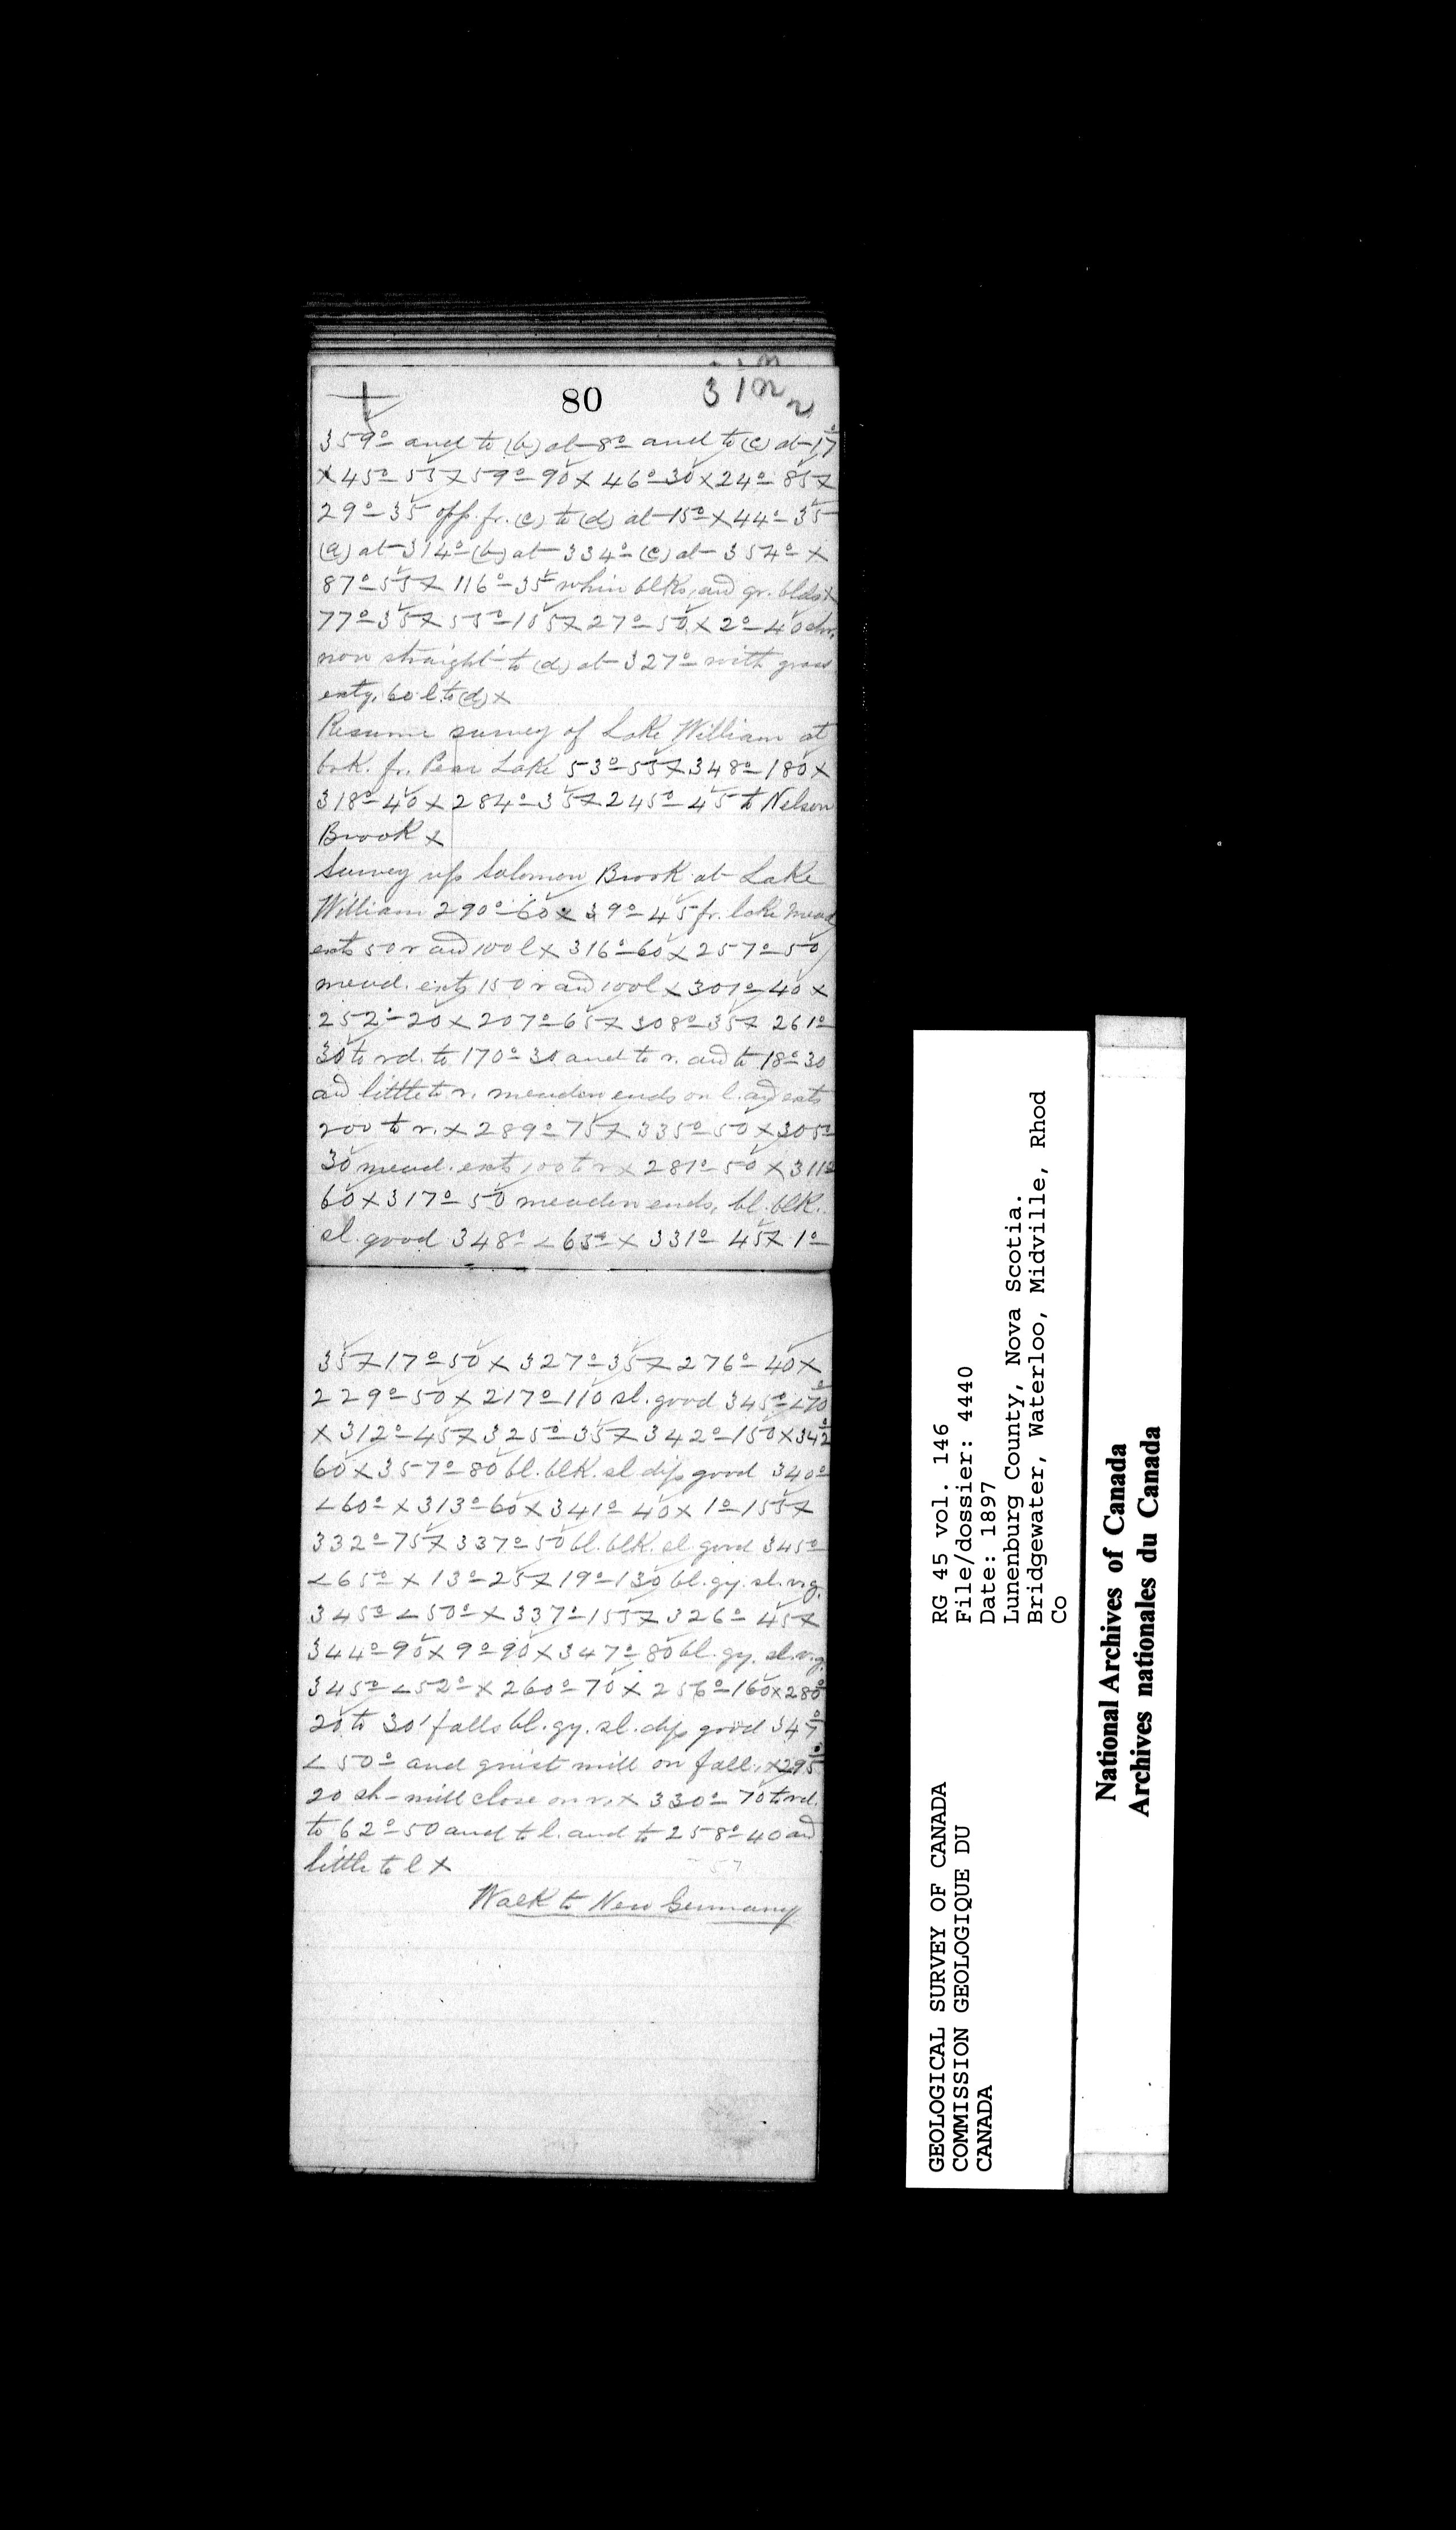 80
359° and to (b) at 8° and to (c) at 17°
X 45° 55 X 59° 90 X 46° 30 X 24° 85 X
29° 35 opp. fr. (c) to (d) at 15° X 44° 35
(a) at 314° (b) at 334° (c) at 354° X
87° 55 X 116° 35 whin blks, and gr. blds X
77° 35 X 55° 155 X 27° 50 X 2° 40
now straight to (d) at 327° with grass
extg. 60 l. to (d) X
Resume survey of Lake William at
brk. fr. Pear Lake 53° 55 X 348° 180 X
318° 40 X 284° 35 X 245° 45 to Nelson
Brook X
Survey up Solomon Brook at Lake
William 290° 60 X 39° 45 fr. lake mead
exts 50 r and 100 l X 316° 60 X 257° 50
mead. exts 150 r and 100 l X 301° 40 X
252° 20 X 207° 65 X 308° 35 X 261°
30 to rd. to 170° 30 and to r. and to 18° 30
and little to r. meadow ends on l. and exts
200 to r. X 289° 75 X 335° 50 X 305°
30 mead. exts 100 to r X 281° 50 X 311°
60 X 317° 50 meadow ends, bl. blk.
sl. good 348° < 65° X 331° 45 X 1°
35 X 17° 50 X 327° 35 X 276° 40 X
229° 50 X 217° 110 sl. good 345° < 70°
X 312° 45 X 325° 35 X 342° 150 X 342°
60 X 357° 80 bl. blk. sl dip good 340°
< 60° X 313° 60 X 341° 40 X 1° 155 X
332° 75 X 337° 50 bl. blk. sl. good 345°
< 65° X 13° 25 X 19° 130 bl. gy. sl. v.g.
345° < 50° X 337° 155 X 326° 45 X
344° 90 X 9° 90 X 347° 80 bl. gy. sl. v.g.
345° < 52° X 260° 70 X 256° 160 X 280°
20 to 30' falls bl. gy. sl. dip good 347°
< 50° and grist mill on fall, X 295°
20 sh-mill close on r. X 330° 70 to rd.
to 62° 50 and to l. and to 258° 40 and
little to l X
Walk to New Germany
GEOLOGICAL SURVEY OF CANADA
COMMISSION GEOLOGIQUE DU
CANADA
RG 45 vol. 146
File/dossier: 4440
Date: 1897
Lunenburg County, Nova Scotia.
Bridgewater, Waterloo, Midville, Rhod
Co
National Archives of Canada
Archives nationales du Canada